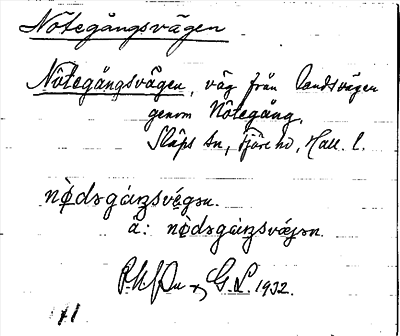 Nötegångsvägen
Nötegångsvägen, väg från Landsvägen
genom Nötegång,
Släps sn, Fjäre hd, Hall. l.
nø̀dəgáŋsvɛ́gən.
ä: nø̀dəgáŋsvǽgən.
& G. L. 1932.